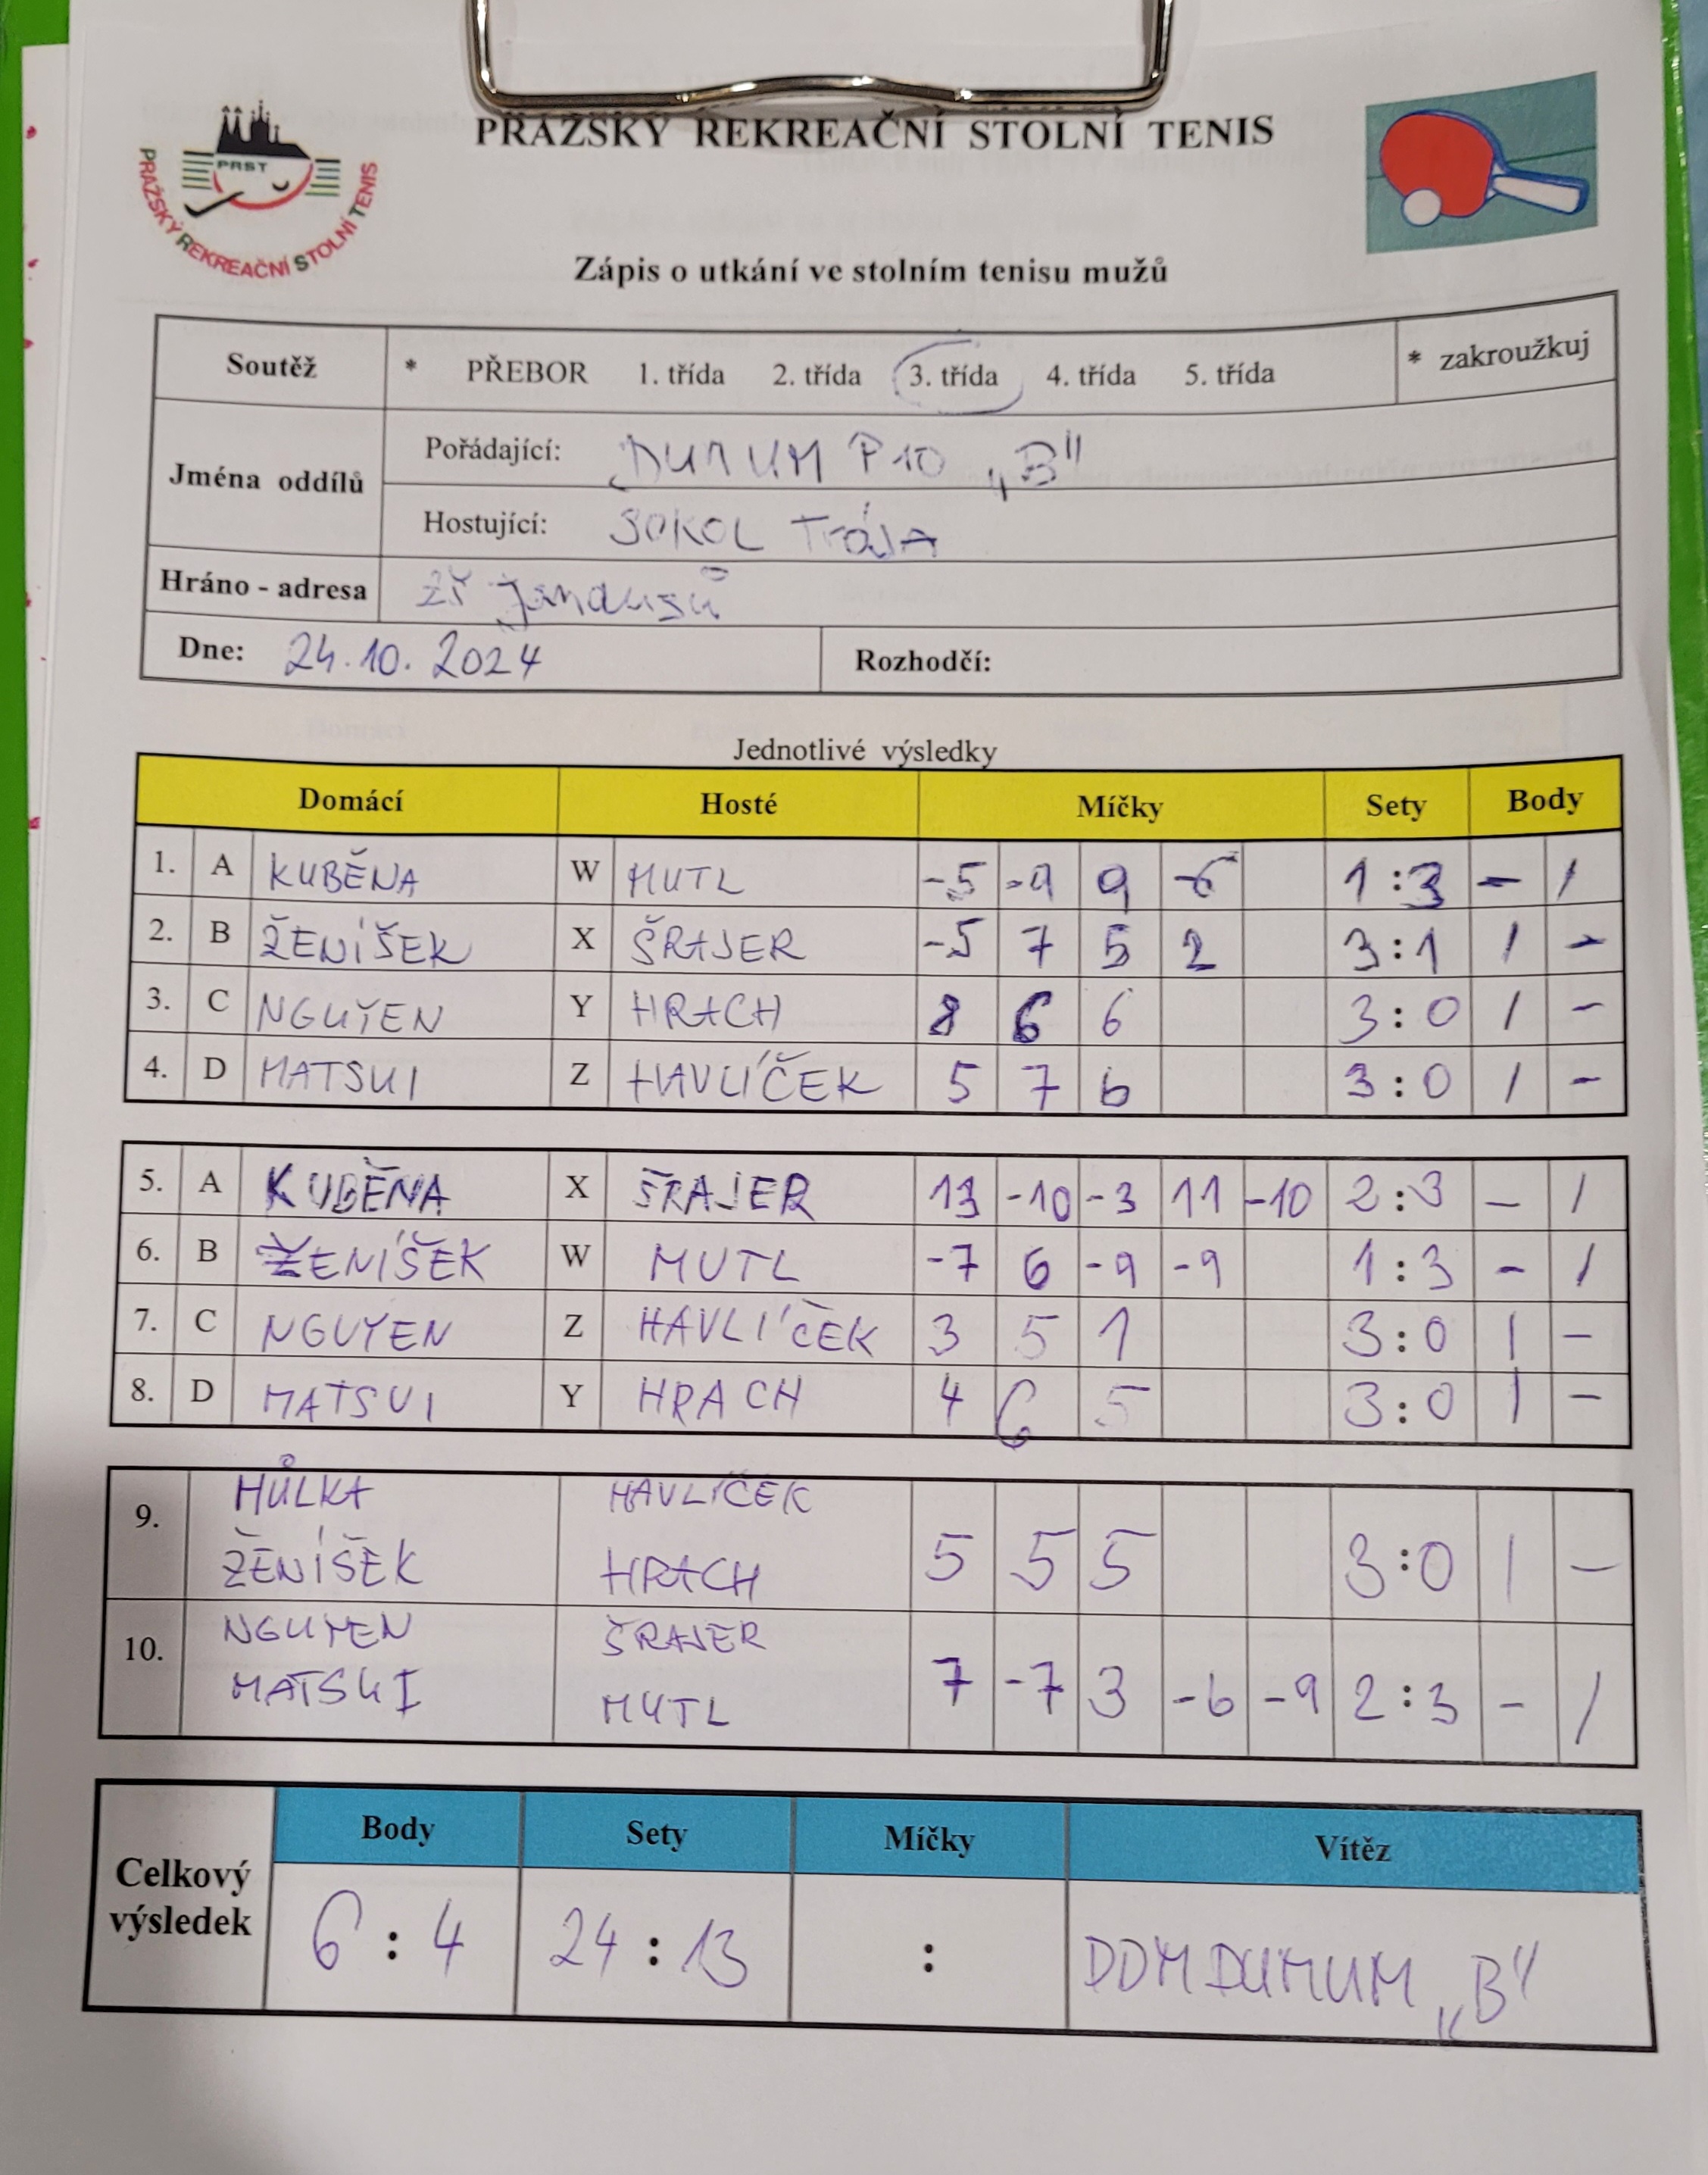 PRAŽSKÝ REKREAČNÍ STOLNÍ TENIS
PRST
PRAŽSKÝ REKREAČNÍ STOLNÍ TENIS
Zápis o utkání ve stolním tenisu mužů
Soutěž * PŘEBOR 1. třída 2. třída 3. třída 4. třída 5. třída * zakroužkuj
Jména oddílů
Pořádající: DUMUM P10 „B"
Hostující: SOKOL TróJA
Hráno - adresa ZŠ Jandusů
Dne: 24.10. 2024 Rozhodčí:
Jednotlivé výsledky
Domácí Hosté Míčky Sety Body
1. A KUBĚNA W MUTL -5 -9 9 -6 1:3 - /
2. B ŽENÍŠEK X ŠRAJER -5 7 5 2 3:1 / -
3. C NGUYEN Y HRACH 8 6 6 3:0 / -
4. D MATSUI Z HAVLÍČEK 5 7 6 3:0 / -
5. A KUBĚNA X ŠRAJER 13 -10 -3 11 -10 2:3 - /
6. B ŽENÍŠEK W MUTL -7 6 -9 -9 1:3 - /
7. C NGUYEN Z HAVLÍČEK 3 5 1 3:0 | -
8. D MATSUI Y HRACH 4 6 5 3:0 | -
9. HŮLKA HAVLÍČEK
ŽENÍŠEK HRACH 5 5 5 3:0 | -
10. NGUYEN ŠRAJER
MATSUI MUTL 7 -7 3 -6 -9 2:3 - /
Celkový výsledek
Body Sety Míčky Vítěz
6 : 4 24 : 13 : DDM DUMUM „B"